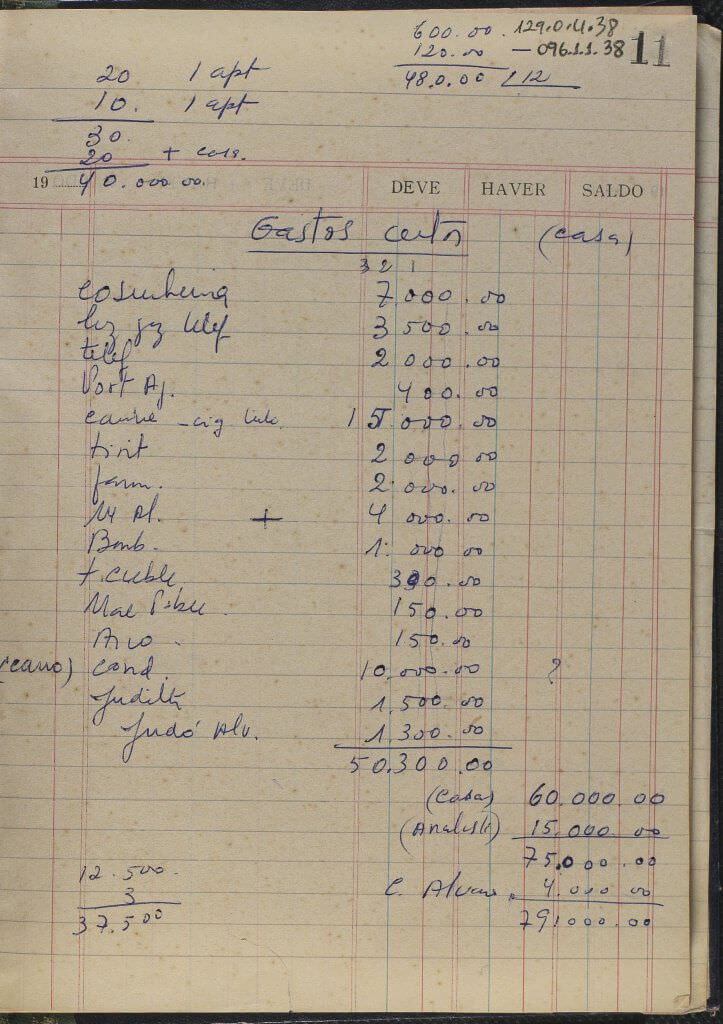 600.00. 129.0.4.38 11
120.00 — 096.1.1.38
480.00 /12
20 1 apt
10. 1 apt
30.
20 + casa.
19 40.000 00. DEVE HAVER SALDO
Gastos certos (casa)
3 2 1
cosinheira 7 000.00
luz gz telef 3 500.00
telef 2 000.00
Port Aj. 400.00
carne - cig 15.000.00
tint 2 000 00
farm. 2.000.00
+ 4 000.00
Bomb. 1. 000 00
300.00
Mae 150.00
150.00
(carro) cand. 10.000.00 ?
Judith 1.500.00
Judó Alv. 1.300.00
50.300.00
(Casa) 60.000.00
(Analista) 15.000 00
75.000.00
12.500. C. Alvaro. 4.000 00
3
37.500 79.000.00